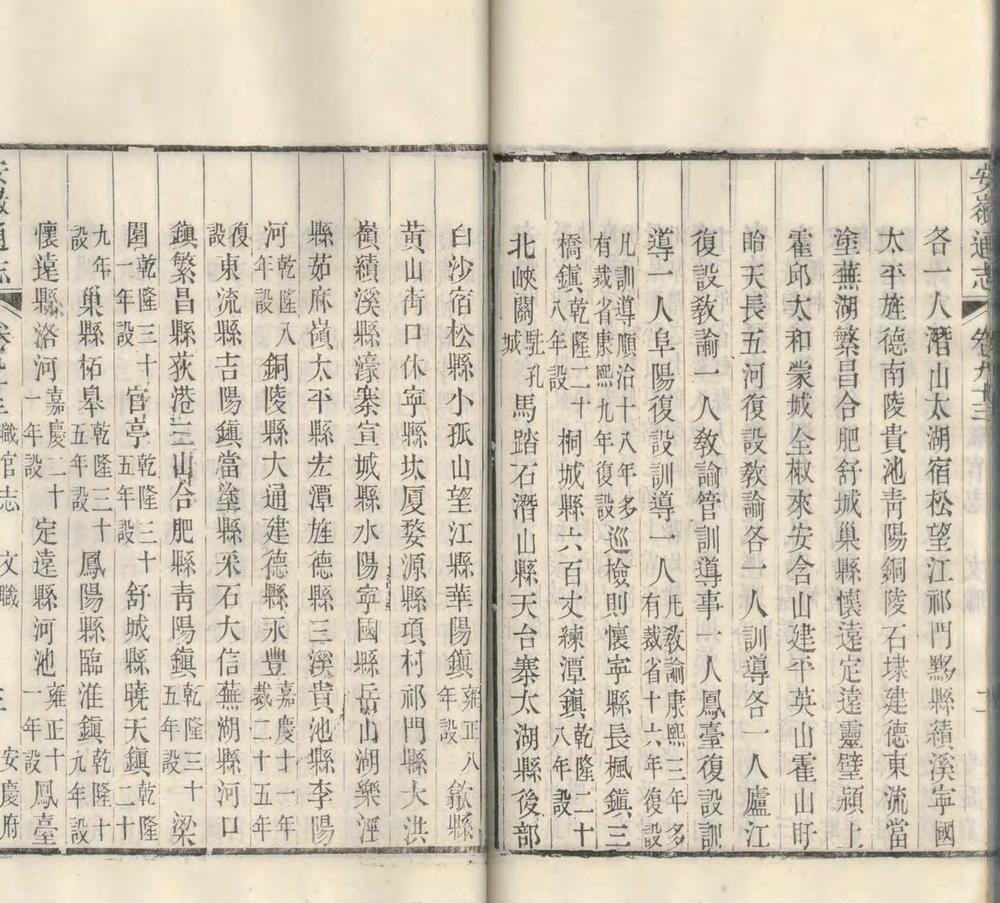 安徽通志 卷九十三 十一
各一人潛山太湖宿松望江祁門黟縣績溪寧國
太平旌德南陵貴池靑陽銅陵石埭建德東流當
塗蕪湖繁昌合肥舒城巢縣懷遠定遠靈璧潁上
霍邱太和蒙城全椒來安含山建平英山霍山盱
眙天長五河復設敎諭各一人訓導各一人廬江
復設敎諭一人敎諭管訓導事一人鳳臺復設訓
導一人阜陽復設訓導一人凡敎諭康熙三年多有裁省十六年復設
凡訓導順治十八年多有裁省康熙九年復設巡檢則懷寧縣長楓鎭三
橋鎭乾隆二十八年設桐城縣六百丈練潭鎭乾隆二十八年設
北峽關駐孔城馬踏石潛山縣天台寨太湖縣後部
白沙宿松縣小孤山望江縣華陽鎭雍正八年設歙縣
黃山街口休寧縣圵厦婺源縣項村祁門縣大洪
嶺績溪縣濠寨宣城縣水陽寧國縣岳山湖樂涇
縣茹麻嶺太平縣宏潭旌德縣三溪貴池縣李陽
河乾隆八年設銅陵縣大通建德縣永豐嘉慶十一年裁二十五年
復設東流縣吉陽鎭當塗縣采石大信蕪湖縣河口
鎭繁昌縣荻港三山合肥縣靑陽鎭乾隆三十五年設梁
園乾隆三十一年設官亭乾隆三十五年設舒城縣曉天鎭乾隆二十
九年設巢縣柘皋乾隆三十五年設鳳陽縣臨淮鎭乾隆十九年設
懷遠縣洛河嘉慶二十一年設定遠縣河池雍正十一年設鳳臺
通志 職官志 文職 安慶府